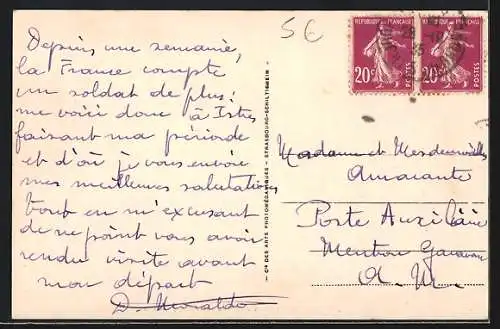 Depuis une semaine,
la France compte
un soldat de plus!
me voici donc à Istres
faisant ma période
et d'où je vous envoie
mes meilleures salutations
tout en m'excusant
de ne point vous avoir
rendu visite avant
mon départ
D.
5€
REPUBLIQUE FRANÇAISE
20c POSTES
REPUBLIQUE FRANÇAISE
20c POSTES
Cie DES ARTS PHOTOMÉCANIQUES - STRASBOURG-SCHILTIGHEIM
Madame et Mesdemoiselles
Amarante
Poste Auxiliaire
Menton Garavan
A. M.